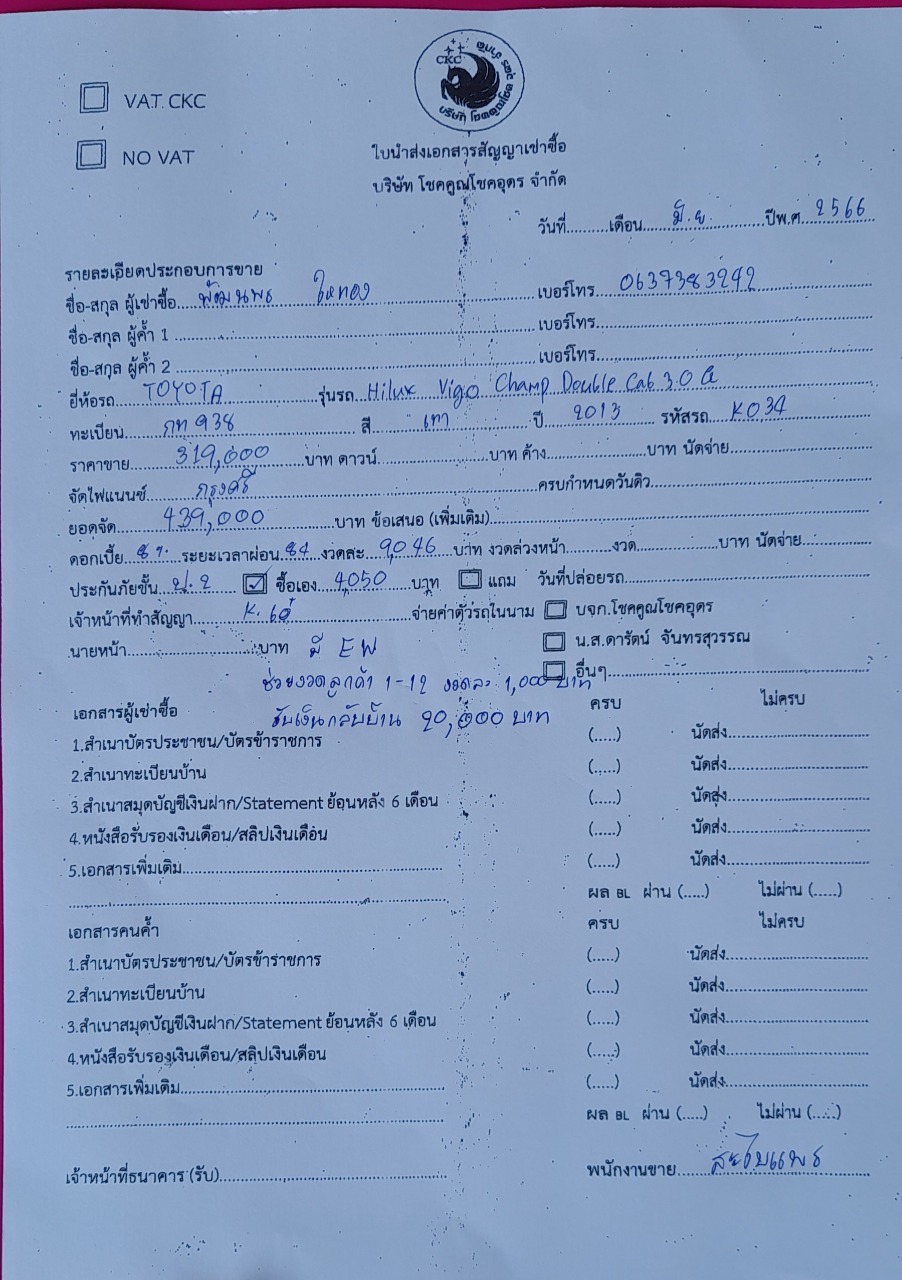 CKC
บริษัท โชคคูณโชคอุดร จำกัด
VAT CKC
NO VAT
ใบนำส่งเอกสารสัญญาเช่าซื้อ
บริษัท โชคคูณโชคอุดร จำกัด
วันที่..........เดือน....มิ.ย.....ปีพ.ศ. 2566
รายละเอียดประกอบการขาย
ชื่อ-สกุล ผู้เช่าซื้อ.... เบอร์โทร.... 0637383292
ชื่อ-สกุล ผู้ค้ำ 1 .... เบอร์โทร....
ชื่อ-สกุล ผู้ค้ำ 2 .... เบอร์โทร....
ยี่ห้อรถ.... TOYOTA ....รุ่นรถ.. Hilux Vigo Champ Double Cab 3.0 G
ทะเบียน.... กท 938 .... สี .... เทา .... ปี .... 2013 .... รหัสรถ.. K034
ราคาขาย.... 319,000 ....บาท ดาวน์....บาท ค้าง....บาท นัดจ่าย....
จัดไฟแนนซ์.... กรุงศรี ....ครบกำหนดวันดิว....
ยอดจัด.... 439,000 ....บาท ข้อเสนอ (เพิ่มเติม)....
ดอกเบี้ย.. 8% ..ระยะเวลาผ่อน. 84 .งวดละ.. 9,046 ..บาท งวดล่วงหน้า....งวด....บาท นัดจ่าย....
ประกันภัยชั้น.. ป.2 .. ☑ ซื้อเอง.. 4,050 ..บาท ☐ แถม วันที่ปล่อยรถ....
เจ้าหน้าที่ทำสัญญา.... K. เอ๋ ....จ่ายค่าตัวรถในนาม ☐ บจก.โชคคูณโชคอุดร
นายหน้า....บาท มี EW ☐ น.ส.ดารัตน์ จันทรสุวรรณ
☐ อื่นๆ....
ช่วยงวดลูกค้า 1-12 งวดละ 1,000 บาท
เอกสารผู้เช่าซื้อ รับเงินกลับบ้าน 20,000 บาท ครบ ไม่ครบ
1.สำเนาบัตรประชาชน/บัตรข้าราชการ (.....) นัดส่ง....
2.สำเนาทะเบียนบ้าน (.....) นัดส่ง....
3.สำเนาสมุดบัญชีเงินฝาก/Statement ย้อนหลัง 6 เดือน (.....) นัดส่ง....
4.หนังสือรับรองเงินเดือน/สลิปเงินเดือน (.....) นัดส่ง....
5.เอกสารเพิ่มเติม.... (.....) นัดส่ง....
ผล BL ผ่าน (.....) ไม่ผ่าน (.....)
เอกสารคนค้ำ ครบ ไม่ครบ
1.สำเนาบัตรประชาชน/บัตรข้าราชการ (.....) นัดส่ง....
2.สำเนาทะเบียนบ้าน (.....) นัดส่ง....
3.สำเนาสมุดบัญชีเงินฝาก/Statement ย้อนหลัง 6 เดือน (.....) นัดส่ง....
4.หนังสือรับรองเงินเดือน/สลิปเงินเดือน (.....) นัดส่ง....
5.เอกสารเพิ่มเติม.... (.....) นัดส่ง....
ผล BL ผ่าน (.....) ไม่ผ่าน (.....)
เจ้าหน้าที่ธนาคาร (รับ).... พนักงานขาย....